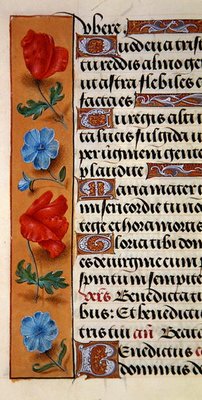 ubere.
Quod eua trist
tu reddis almo ge
ut astra flebiles c
facta es
Tu regis alti i
ta lucis fulgida
per uirginem gente
plaudite
Maria mater
misericordie tu n
tege et hora mortis
Gloria tibi do
es de uirgine cum
spiritu in sempit
vers Benedicta t
bus: Et benedict
tris tui añ Beat
Benedictus
dominus de